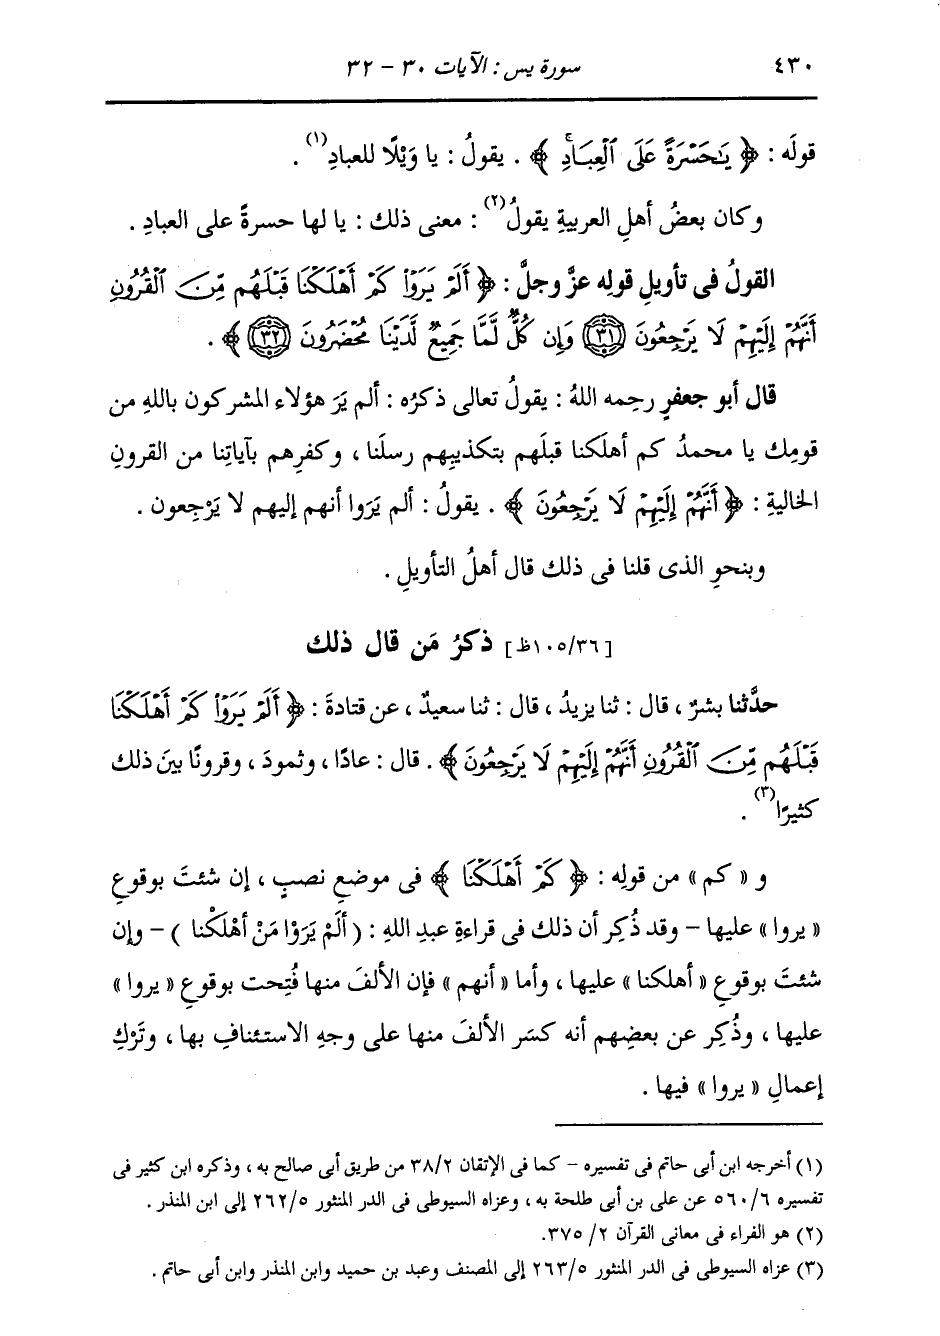 ٤٣٠ سورة يس : الآيات ٣٠ - ٣٢
قولَه : ﴿ يَٰحَسْرَةً عَلَى ٱلْعِبَادِۚ ﴾ . يقولُ : يا وَيْلًا للعبادِ(١) .
وكان بعضُ أهلِ العربيةِ يقولُ(٢) : معنى ذلك : يا لها حسرةً على العبادِ .
القولُ فى تأويلِ قولِه عزَّ وجلَّ : ﴿ أَلَمْ يَرَوْا۟ كَمْ أَهْلَكْنَا قَبْلَهُم مِّنَ ٱلْقُرُونِ
أَنَّهُمْ إِلَيْهِمْ لَا يَرْجِعُونَ ﴿٣١﴾ وَإِن كُلٌّ لَّمَّا جَمِيعٌ لَّدَيْنَا مُحْضَرُونَ ﴿٣٢﴾ ﴾ .
قال أبو جعفرٍ رحِمه اللهُ : يقولُ تعالى ذكرُه : ألم يَرَ هؤلاء المشركون باللهِ من
قومِك يا محمدُ كم أهلَكنا قبلَهم بتكذيبِهم رسلَنا ، وكفرِهم بآياتِنا من القرونِ
الخاليةِ : ﴿ أَنَّهُمْ إِلَيْهِمْ لَا يَرْجِعُونَ ﴾ . يقولُ : ألم يَرَوا أنهم إليهم لا يَرْجِعون .
وبنحوِ الذى قلنا فى ذلك قال أهلُ التأويلِ .
[١٠٥/٣٦ظ] ذكرُ مَن قال ذلك
حدَّثنا بشرٌ ، قال : ثنا يزيدُ ، قال : ثنا سعيدٌ ، عن قتادةَ : ﴿ أَلَمْ يَرَوْا۟ كَمْ أَهْلَكْنَا
قَبْلَهُم مِّنَ ٱلْقُرُونِ أَنَّهُمْ إِلَيْهِمْ لَا يَرْجِعُونَ ﴾ . قال : عادًا ، وثمودَ ، وقرونًا بينَ ذلك
كثيرًا(٣) .
و « كم » من قولِه : ﴿ كَمْ أَهْلَكْنَا ﴾ فى موضعِ نصبٍ ، إن شئتَ بوقوعِ
« يروا » عليها - وقد ذُكِر أن ذلك فى قراءةِ عبدِ اللهِ : ( ألَمْ يَرَوْا مَنْ أهْلَكْنا ) - وإن
شئتَ بوقوعِ « أهلكنا » عليها ، وأما « أنهم » فإن الألفَ منها فُتِحت بوقوعِ « يروا »
عليها ، وذُكِر عن بعضِهم أنه كسَر الألفَ منها على وجهِ الاستئنافِ بها ، وتَرْكِ
إعمالِ « يروا » فيها .
(١) أخرجه ابن أبى حاتم فى تفسيره - كما فى الإتقان ٣٨/٢ من طريق أبى صالح به ، وذكره ابن كثير فى
تفسيره ٥٦٠/٦ عن على بن أبى طلحة به ، وعزاه السيوطى فى الدر المنثور ٢٦٢/٥ إلى ابن المنذر .
(٢) هو الفراء فى معانى القرآن ٢/ ٣٧٥.
(٣) عزاه السيوطى فى الدر المنثور ٢٦٣/٥ إلى المصنف وعبد بن حميد وابن المنذر وابن أبى حاتم .